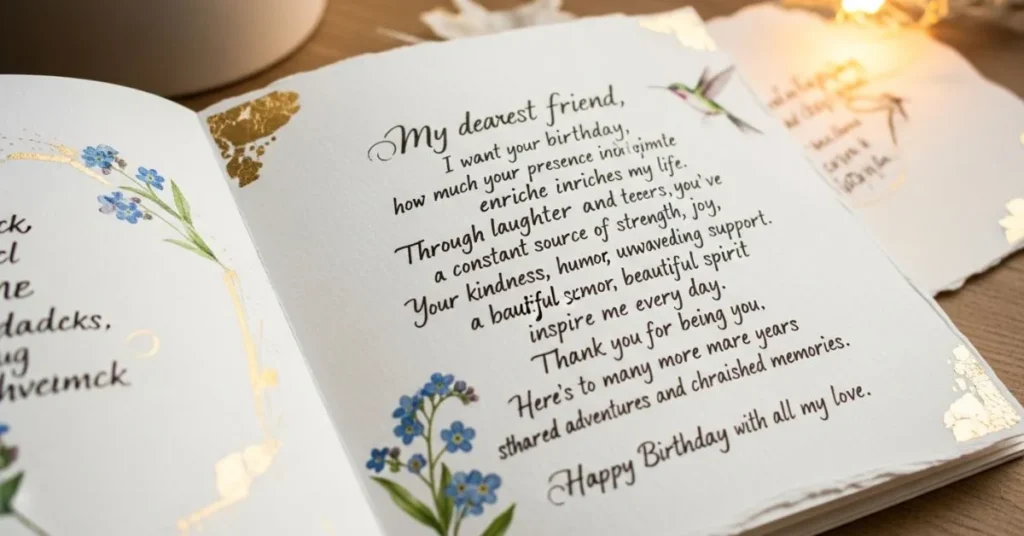 My dearest friend,
I want your birthday,
how much your presence
enriche inriches my life.
Through laughter and teeers, you've
a constant source of strength, joy,
Your kindness, humor, unwaveding support.
a bautiful scmor, beautiful spirit
inspire me every day.
Thank you for being you,
Here's to many more mare years
sthared adventures and chraished memories.
Happy Birthday with all my love.